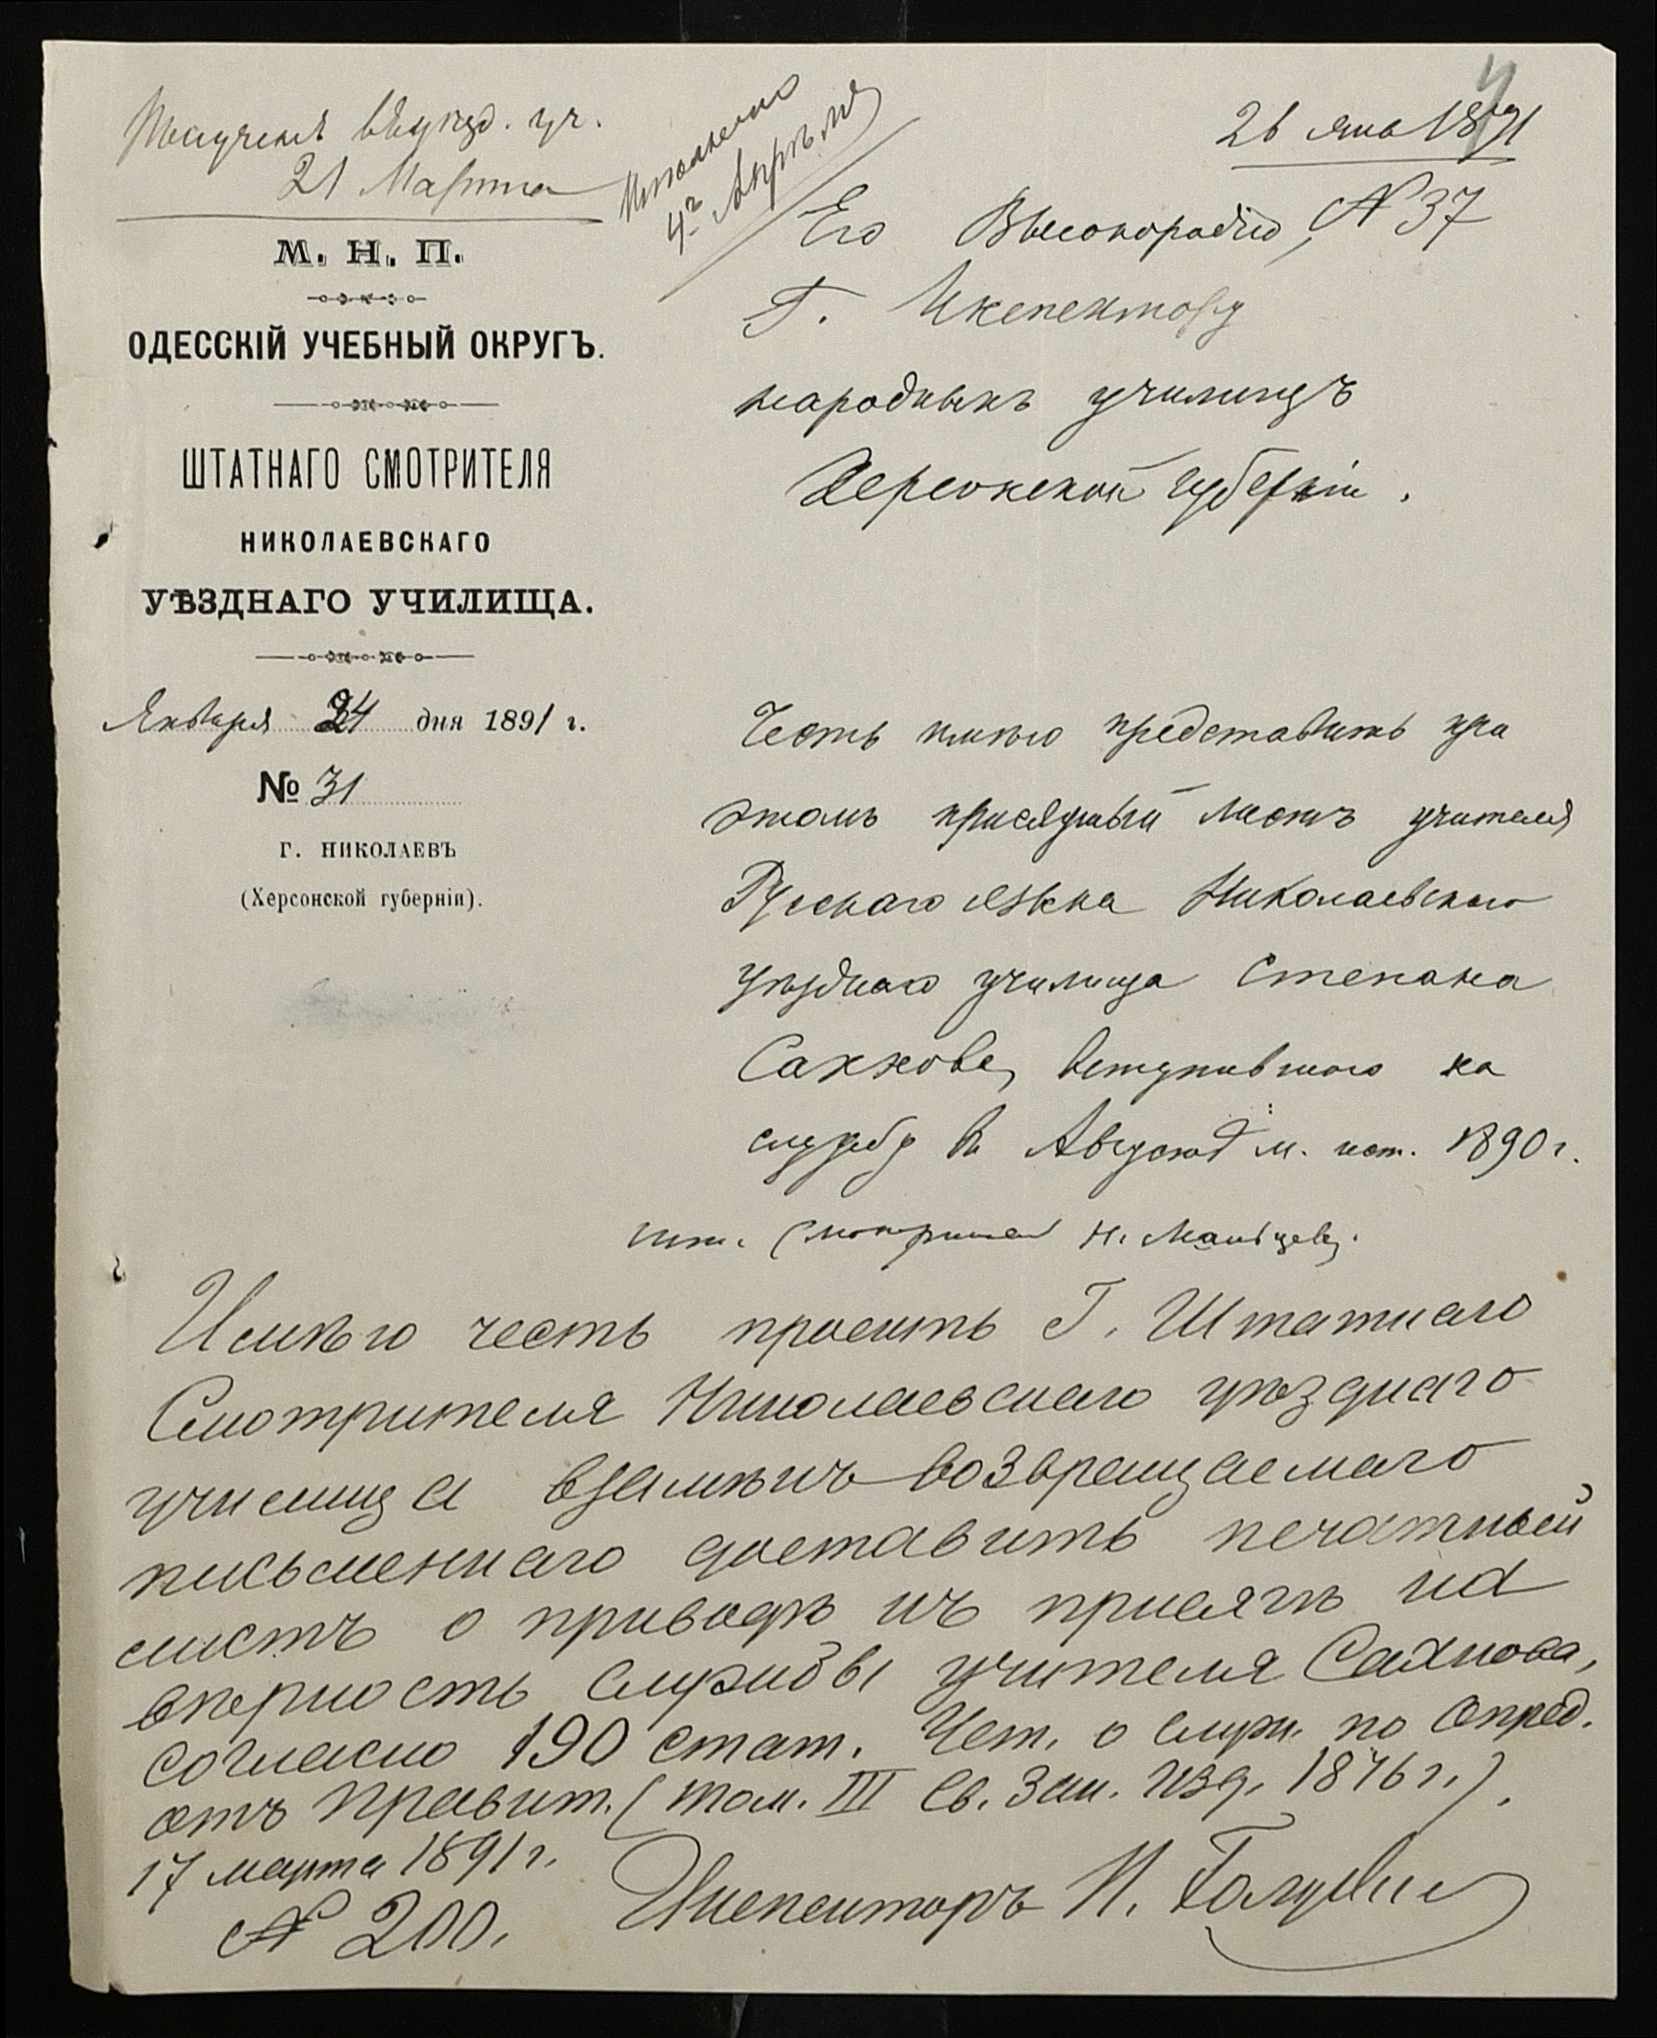 Получена въ уѣзд. уч.
21 Марта
Исполнено
4го Апрѣля
4
26 янв 1891
№ 37
М. Н. П.
ОДЕССКІЙ УЧЕБНЫЙ ОКРУГЪ.
ШТАТНАГО СМОТРИТЕЛЯ
НИКОЛАЕВСКАГО
УѢЗДНАГО УЧИЛИЩА.
Января 24 дня 1891 г.
№ 31
Г. НИКОЛАЕВЪ
(Херсонской губерніи).
Его Высокородію,
Г. Инспектору
народныхъ училищъ
Херсонской губерніи.
Честь имѣю представить при
этомъ присяжный листъ учителя
Русскаго языка Николаевскаго
уѣзднаго училища Степана
Сахнова, вступившаго на
службу въ Августѣ м. 1890 г.
Шт. Смотритель Н. Мальцевъ.
Имѣю честь просить Г. Штатнаго
Смотрителя Николаевскаго уѣзднаго
училища взамѣнъ возвращаемаго
письменнаго доставить печатный
листъ о приводѣ къ присягѣ на
вѣрность службы учителя Сахнова,
согласно 190 стат. Уст. о служ. по опред.
отъ правит. (том. III Св. Зак. изд. 1876 г.).
17 марта 1891 г.
№ 200.
Инспекторъ И.